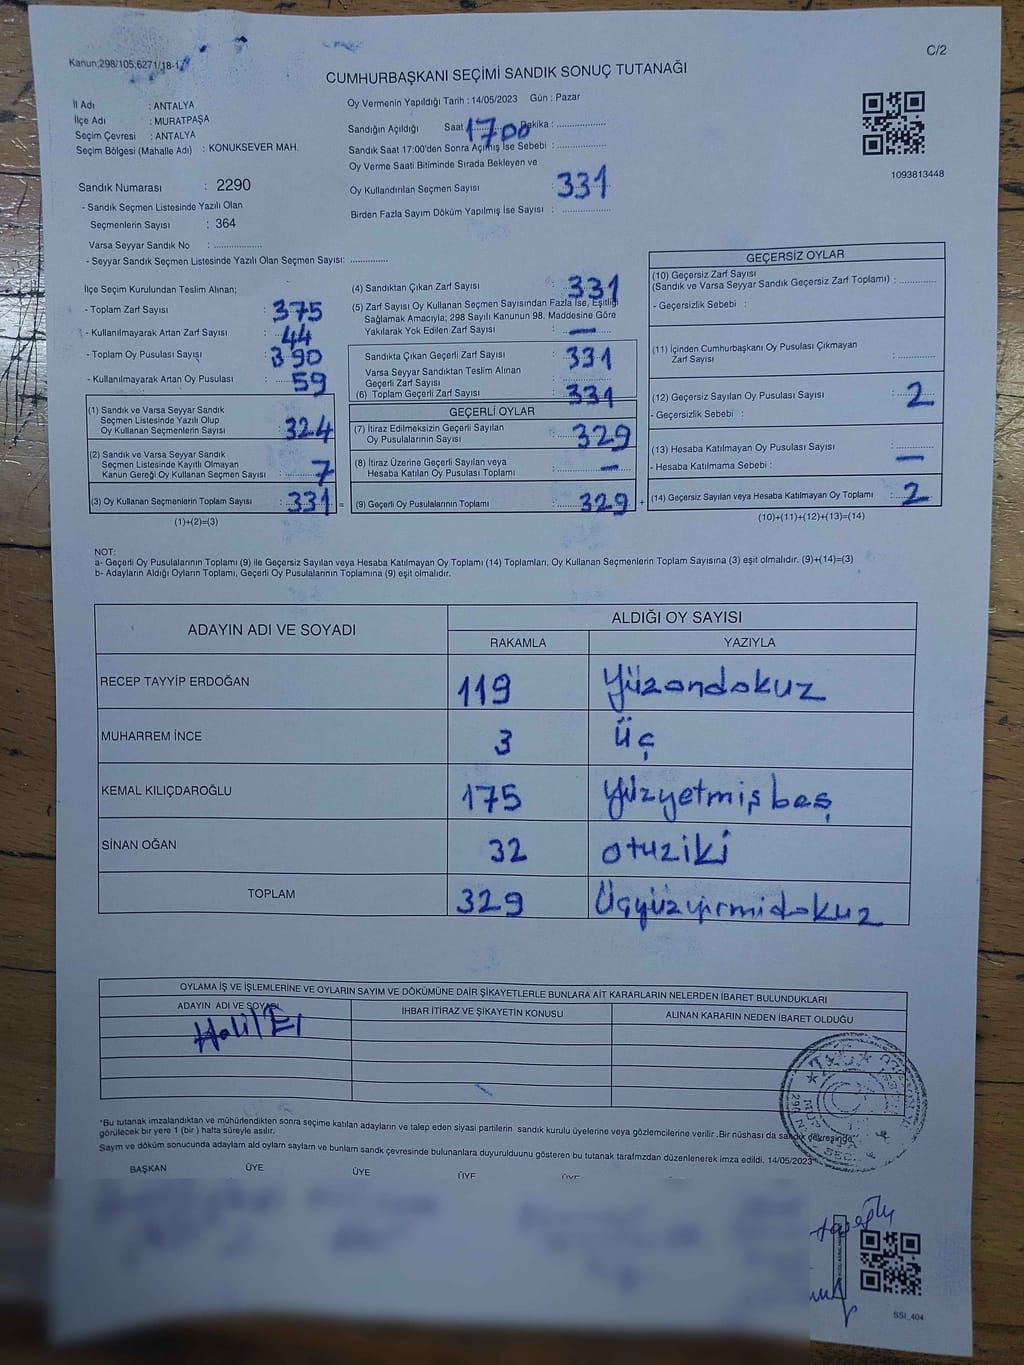 Kanun;298/105;6271/18-1
C/2
CUMHURBAŞKANI SEÇİMİ SANDIK SONUÇ TUTANAĞI
İl Adı : ANTALYA
İlçe Adı : MURATPAŞA
Seçim Çevresi : ANTALYA
Seçim Bölgesi (Mahalle Adı) : KONUKSEVER MAH.
Sandık Numarası : 2290
- Sandık Seçmen Listesinde Yazılı Olan
Seçmenlerin Sayısı : 364
Varsa Seyyar Sandık No : ...................
- Seyyar Sandık Seçmen Listesinde Yazılı Olan Seçmen Sayısı: ..............
Oy Vermenin Yapıldığı Tarih : 14/05/2023 Gün : Pazar
Sandığın Açıldığı Saat 1700 Dakika : ..................
Sandık Saat 17:00'den Sonra Açılmış İse Sebebi : ..................
Oy Verme Saati Bitiminde Sırada Bekleyen ve
Oy Kullandırılan Seçmen Sayısı : 331
Birden Fazla Sayım Döküm Yapılmış İse Sayısı : ..................
1093813448
İlçe Seçim Kurulundan Teslim Alınan;
- Toplam Zarf Sayısı : 375
- Kullanılmayarak Artan Zarf Sayısı : 44
- Toplam Oy Pusulası Sayısı : 390
- Kullanılmayarak Artan Oy Pusulası : 59
(1) Sandık ve Varsa Seyyar Sandık
Seçmen Listesinde Yazılı Olup
Oy Kullanan Seçmenlerin Sayısı : 324
(2) Sandık ve Varsa Seyyar Sandık
Seçmen Listesinde Kayıtlı Olmayan
Kanun Gereği Oy Kullanan Seçmen Sayısı : 7
(3) Oy Kullanan Seçmenlerin Toplam Sayısı : 331 =
(1)+(2)=(3)
(4) Sandıktan Çıkan Zarf Sayısı : 331
(5) Zarf Sayısı Oy Kullanan Seçmen Sayısından Fazla İse, Eşitliği
Sağlamak Amacıyla; 298 Sayılı Kanunun 98. Maddesine Göre
Yakılarak Yok Edilen Zarf Sayısı : —
Sandıkta Çıkan Geçerli Zarf Sayısı : 331
Varsa Seyyar Sandıktan Teslim Alınan
Geçerli Zarf Sayısı : ..................
(6) Toplam Geçerli Zarf Sayısı : 331
GEÇERLİ OYLAR
(7) İtiraz Edilmeksizin Geçerli Sayılan
Oy Pusulalarının Sayısı : 329
(8) İtiraz Üzerine Geçerli Sayılan veya
Hesaba Katılan Oy Pusulası Toplamı : —
(9) Geçerli Oy Pusulalarının Toplamı : 329 +
GEÇERSİZ OYLAR
(10) Geçersiz Zarf Sayısı
(Sandık ve Varsa Seyyar Sandık Geçersiz Zarf Toplamı) : .............
- Geçersizlik Sebebi :
(11) İçinden Cumhurbaşkanı Oy Pusulası Çıkmayan
Zarf Sayısı : .............
(12) Geçersiz Sayılan Oy Pusulası Sayısı : 2
- Geçersizlik Sebebi :
(13) Hesaba Katılmayan Oy Pusulası Sayısı : —
- Hesaba Katılmama Sebebi :
(14) Geçersiz Sayılan veya Hesaba Katılmayan Oy Toplamı : 2
(10)+(11)+(12)+(13)=(14)
NOT:
a- Geçerli Oy Pusulalarının Toplamı (9) ile Geçersiz Sayılan veya Hesaba Katılmayan Oy Toplamı (14) Toplamları, Oy Kullanan Seçmenlerin Toplam Sayısına (3) eşit olmalıdır. (9)+(14)=(3)
b- Adayların Aldığı Oyların Toplamı, Geçerli Oy Pusulalarının Toplamına (9) eşit olmalıdır.
ADAYIN ADI VE SOYADI ALDIĞI OY SAYISI
RAKAMLA YAZIYLA
RECEP TAYYİP ERDOĞAN 119 Yüzondokuz
MUHARREM İNCE 3 Üç
KEMAL KILIÇDAROĞLU 175 Yüzyetmişbeş
SİNAN OĞAN 32 otuziki
TOPLAM 329 Üçyüzyirmidokuz
OYLAMA İŞ VE İŞLEMLERİNE VE OYLARIN SAYIM VE DÖKÜMÜNE DAİR ŞİKAYETLERLE BUNLARA AİT KARARLARIN NELERDEN İBARET BULUNDUKLARI
ADAYIN ADI VE SOYADI İHBAR İTİRAZ VE ŞİKAYETİN KONUSU ALINAN KARARIN NEDEN İBARET OLDUĞU
Halil El
*Bu tutanak imzalandıktan ve mühürlendikten sonra seçime katılan adayların ve talep eden siyasi partilerin sandık kurulu üyelerine veya gözlemcilerine verilir .Bir nüshası da sandık çevresinde
görülecek bir yere 1 (bir ) hafta süreyle asılır.
Sayım ve döküm sonucunda adayların aldı oyların sayıları ve bunların sandık çevresinde bulunanlara duyurulduunu gösteren bu tutanak tarafmzdan düzenlenerek imza edildi. 14/05/2023
BAŞKAN ÜYE ÜYE ÜYE ÜYE
SSI_404